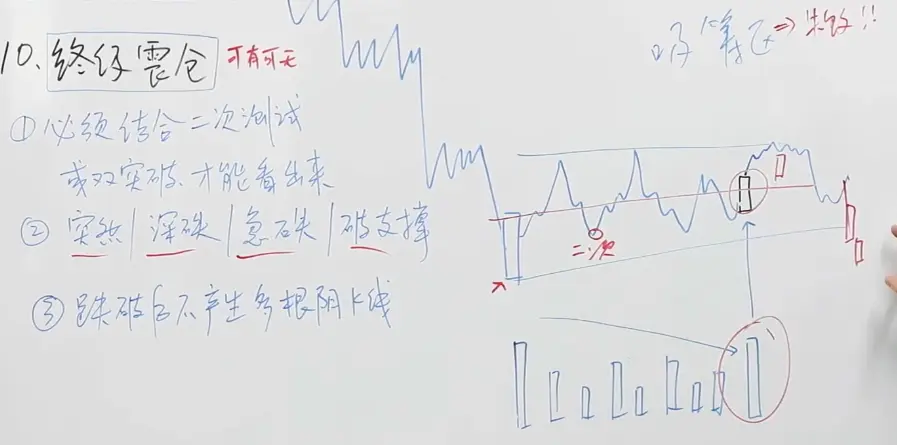 10、终极震仓 可有可无
①必须结合二次测试
或双突破才能看出来
②突然/深跌/急跌/破支撑
③跌破后不产生多根阴K线
二次